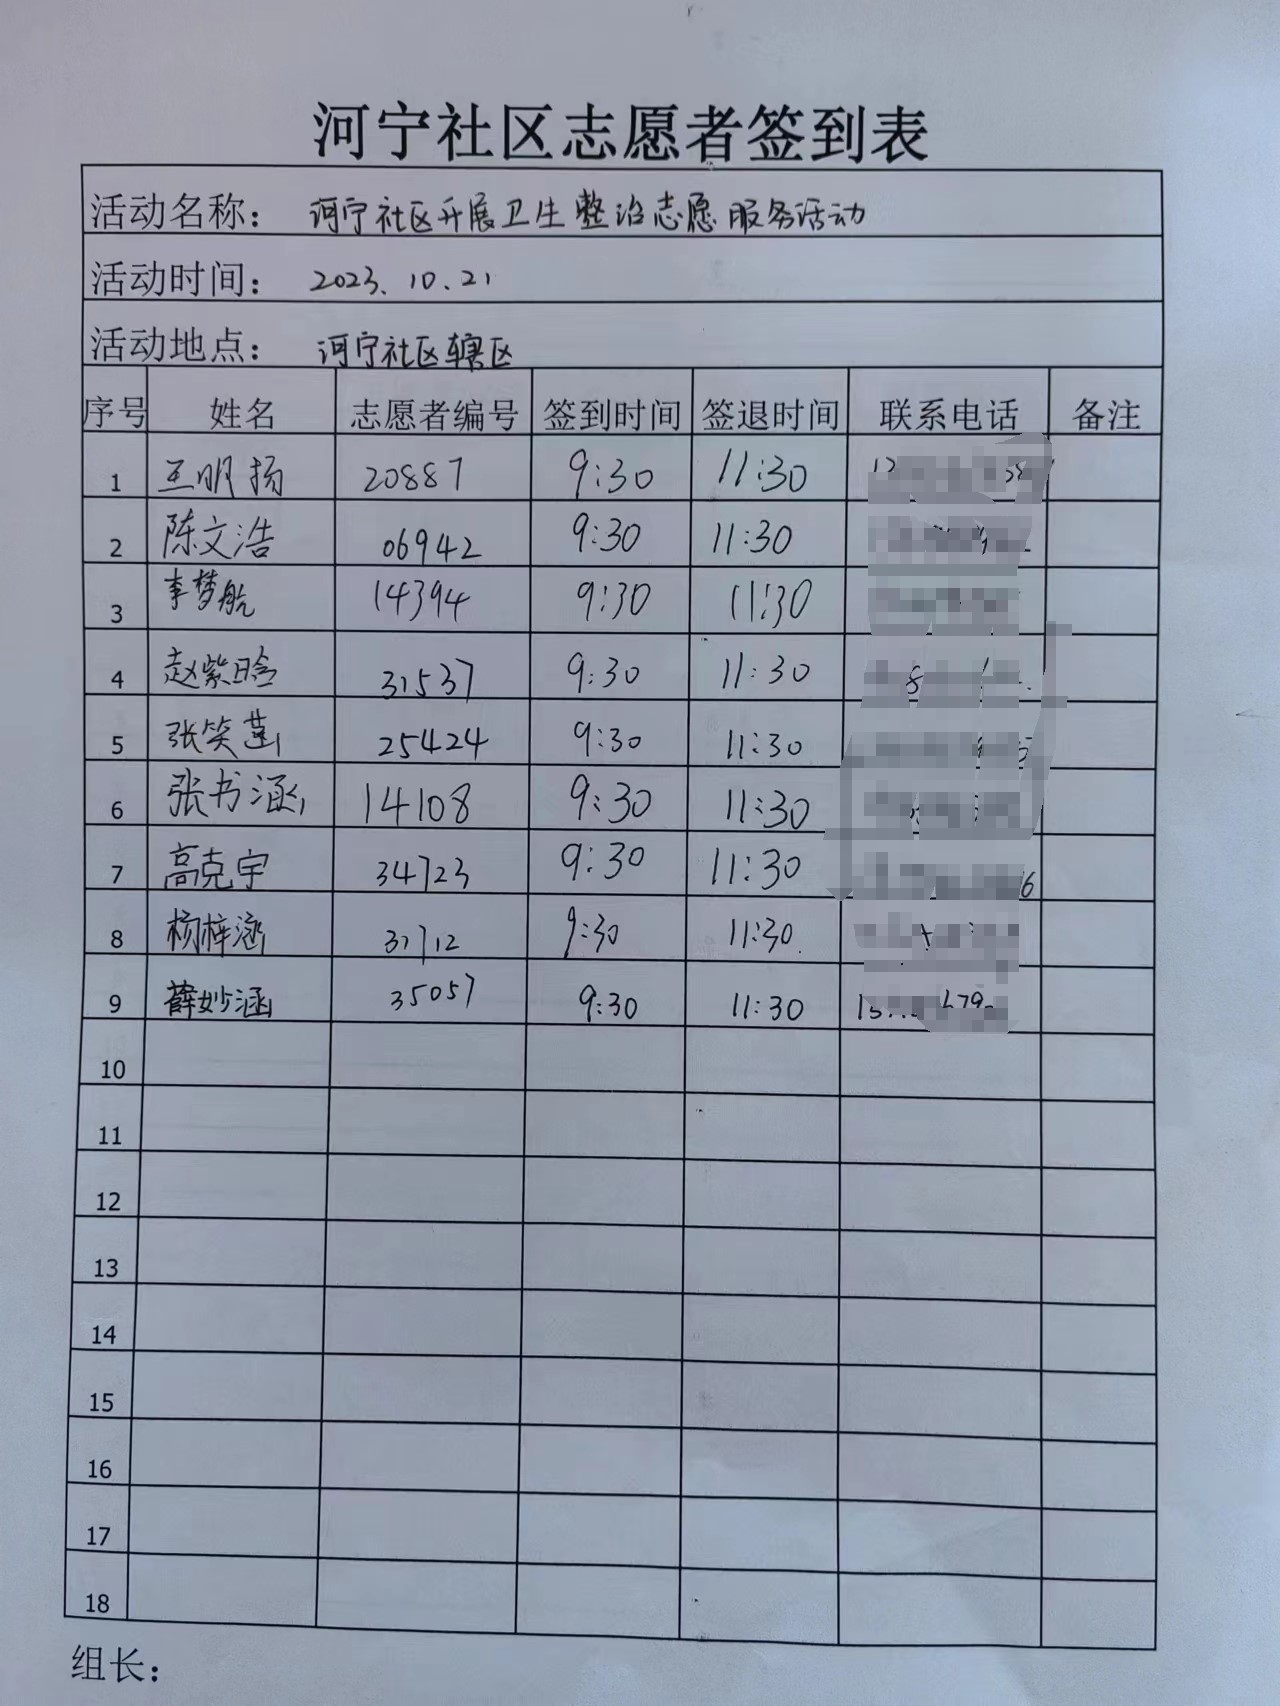 河宁社区志愿者签到表
活动名称： 河宁社区开展卫生整治志愿服务活动
活动时间： 2023.10.21
活动地点： 河宁社区辖区
序号 姓名 志愿者编号 签到时间 签退时间 联系电话 备注
1 王明扬 20887 9:30 11:30
2 陈文浩 06942 9:30 11:30
3 李梦航 14394 9:30 11:30
4 赵紫晗 31537 9:30 11:30
5 张笑菡 25424 9:30 11:30
6 张书涵 14108 9:30 11:30
7 高克宇 34723 9:30 11:30
8 杨梓涵 31712 9:30 11:30
9 薛妙涵 35057 9:30 11:30
10
11
12
13
14
15
16
17
18
组长：